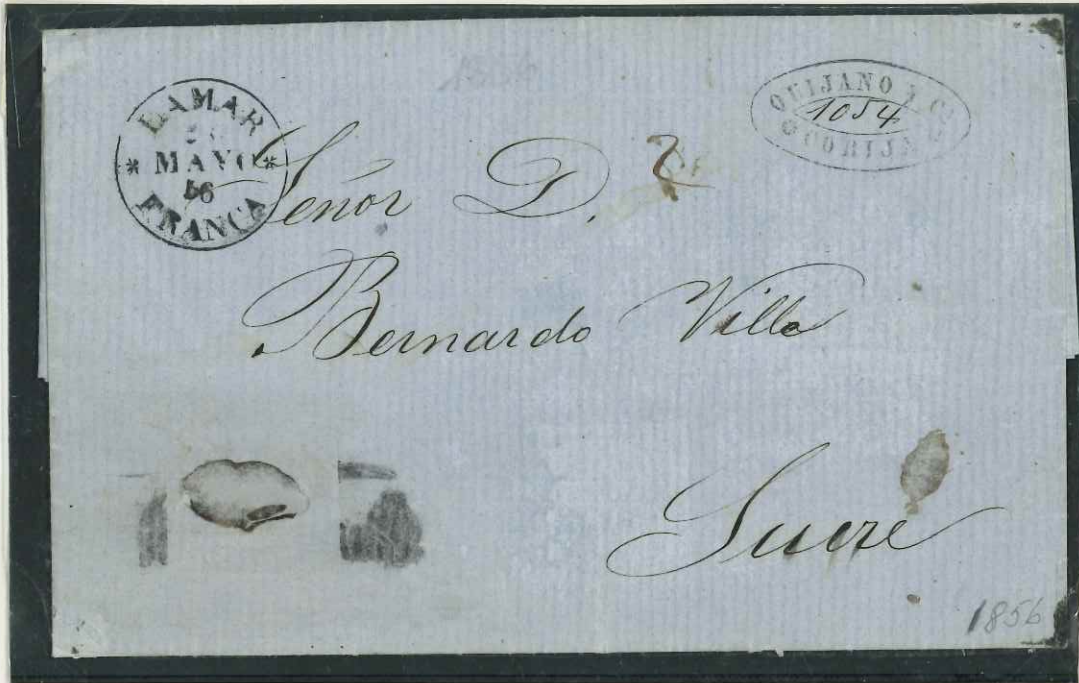 LAMAR
MAYO
56
FRANCA
QUIJANO & Co
1054
COBIJA
1856
Señor D.
2
Bernardo Villa
Sucre
1856